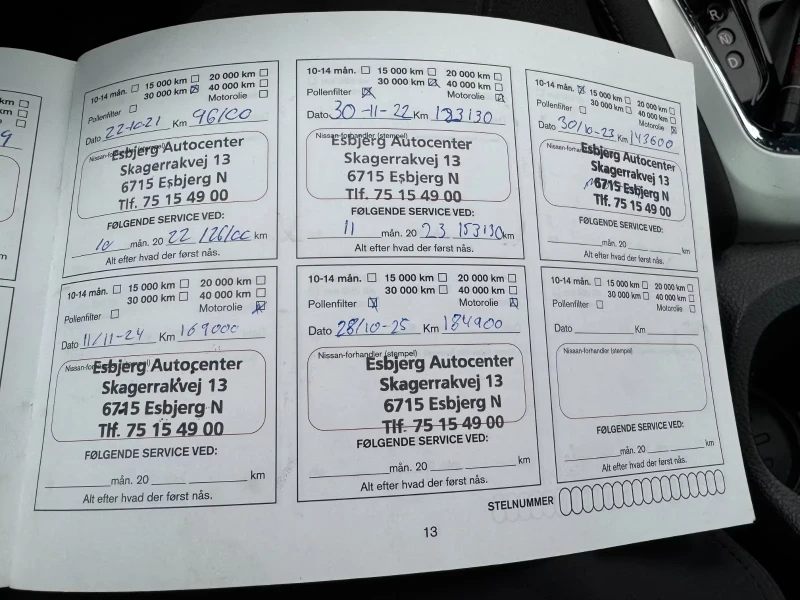 10-14 mån. 15 000 km 20 000 km
30 000 km 40 000 km
Pollenfilter Motorolie
Dato 22-10-21 Km 96100
Nissan-forhandler (stempel)
Esbjerg Autocenter
Skagerrakvej 13
6715 Esbjerg N
Tlf. 75 15 49 00
FØLGENDE SERVICE VED:
10 mån. 20 22 126/00 km
Alt efter hvad der først nås.
10-14 mån. 15 000 km 20 000 km
30 000 km 40 000 km
Pollenfilter Motorolie
Dato 30-11-22 Km 123130
Nissan-forhandler (stempel)
Esbjerg Autocenter
Skagerrakvej 13
6715 Esbjerg N
Tlf. 75 15 49 00
FØLGENDE SERVICE VED:
11 mån. 20 23 153130 km
Alt efter hvad der først nås.
10-14 mån. 15 000 km 20 000 km
30 000 km 40 000 km
Pollenfilter Motorolie
Dato 30/10-23 Km 143600
Esbjerg Autocenter
Skagerrakvej 13
6715 Esbjerg N
Tlf. 75 15 49 00
FØLGENDE SERVICE VED:
mån. 20 km
Alt efter hvad der først nås.
10-14 mån. 15 000 km 20 000 km
30 000 km 40 000 km
Pollenfilter Motorolie
Dato 11/11-24 Km 169000
Esbjerg Autocenter
Skagerrakvej 13
6715 Esbjerg N
Tlf. 75 15 49 00
FØLGENDE SERVICE VED:
mån. 20 km
Alt efter hvad der først nås.
10-14 mån. 15 000 km 20 000 km
30 000 km 40 000 km
Pollenfilter Motorolie
Dato 28/10-25 Km 184900
Nissan-forhandler (stempel)
Esbjerg Autocenter
Skagerrakvej 13
6715 Esbjerg N
Tlf. 75 15 49 00
FØLGENDE SERVICE VED:
mån. 20 km
Alt efter hvad der først nås.
10-14 mån. 15 000 km 20 000 km
30 000 km 40 000 km
Pollenfilter Motorolie
Dato Km
Nissan-forhandler (stempel)
FØLGENDE SERVICE VED:
mån. 20 km
Alt efter hvad der først nås.
STELNUMMER
13
R
N
D